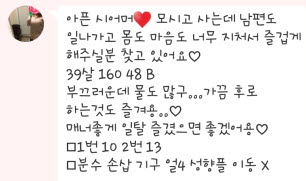 아픈 시어머❤️ 모시고 사는데 남편도
일나가고 몸도 마음도 너무 지쳐서 즐겁게
해주실분 찾고 있어요♡
39살 160 48 B
부끄러운데 물도 많구...가끔 후로
하는것도 즐겨용..♡
매너좋게 일탈 즐겼으면 좋겠어용♡
□1번 10 2번 13
□분수 손삽 기구 얼4 성향플 이동 X